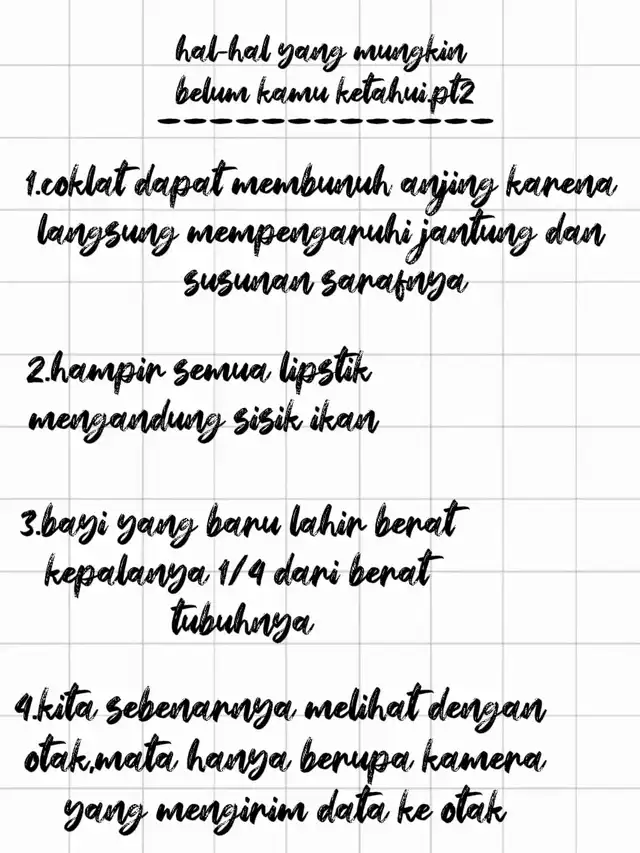 hal-hal yang mungkin
belum kamu ketahui,pt2
1.coklat dapat membunuh anjing karena
langsung mempengaruhi jantung dan
susunan sarafnya
2.hampir semua lipstik
mengandung sisik ikan
3.bayi yang baru lahir berat
kepalanya 1/4 dari berat
tubuhnya
4.kita sebenarnya melihat dengan
otak,mata hanya berupa kamera
yang mengirim data ke otak